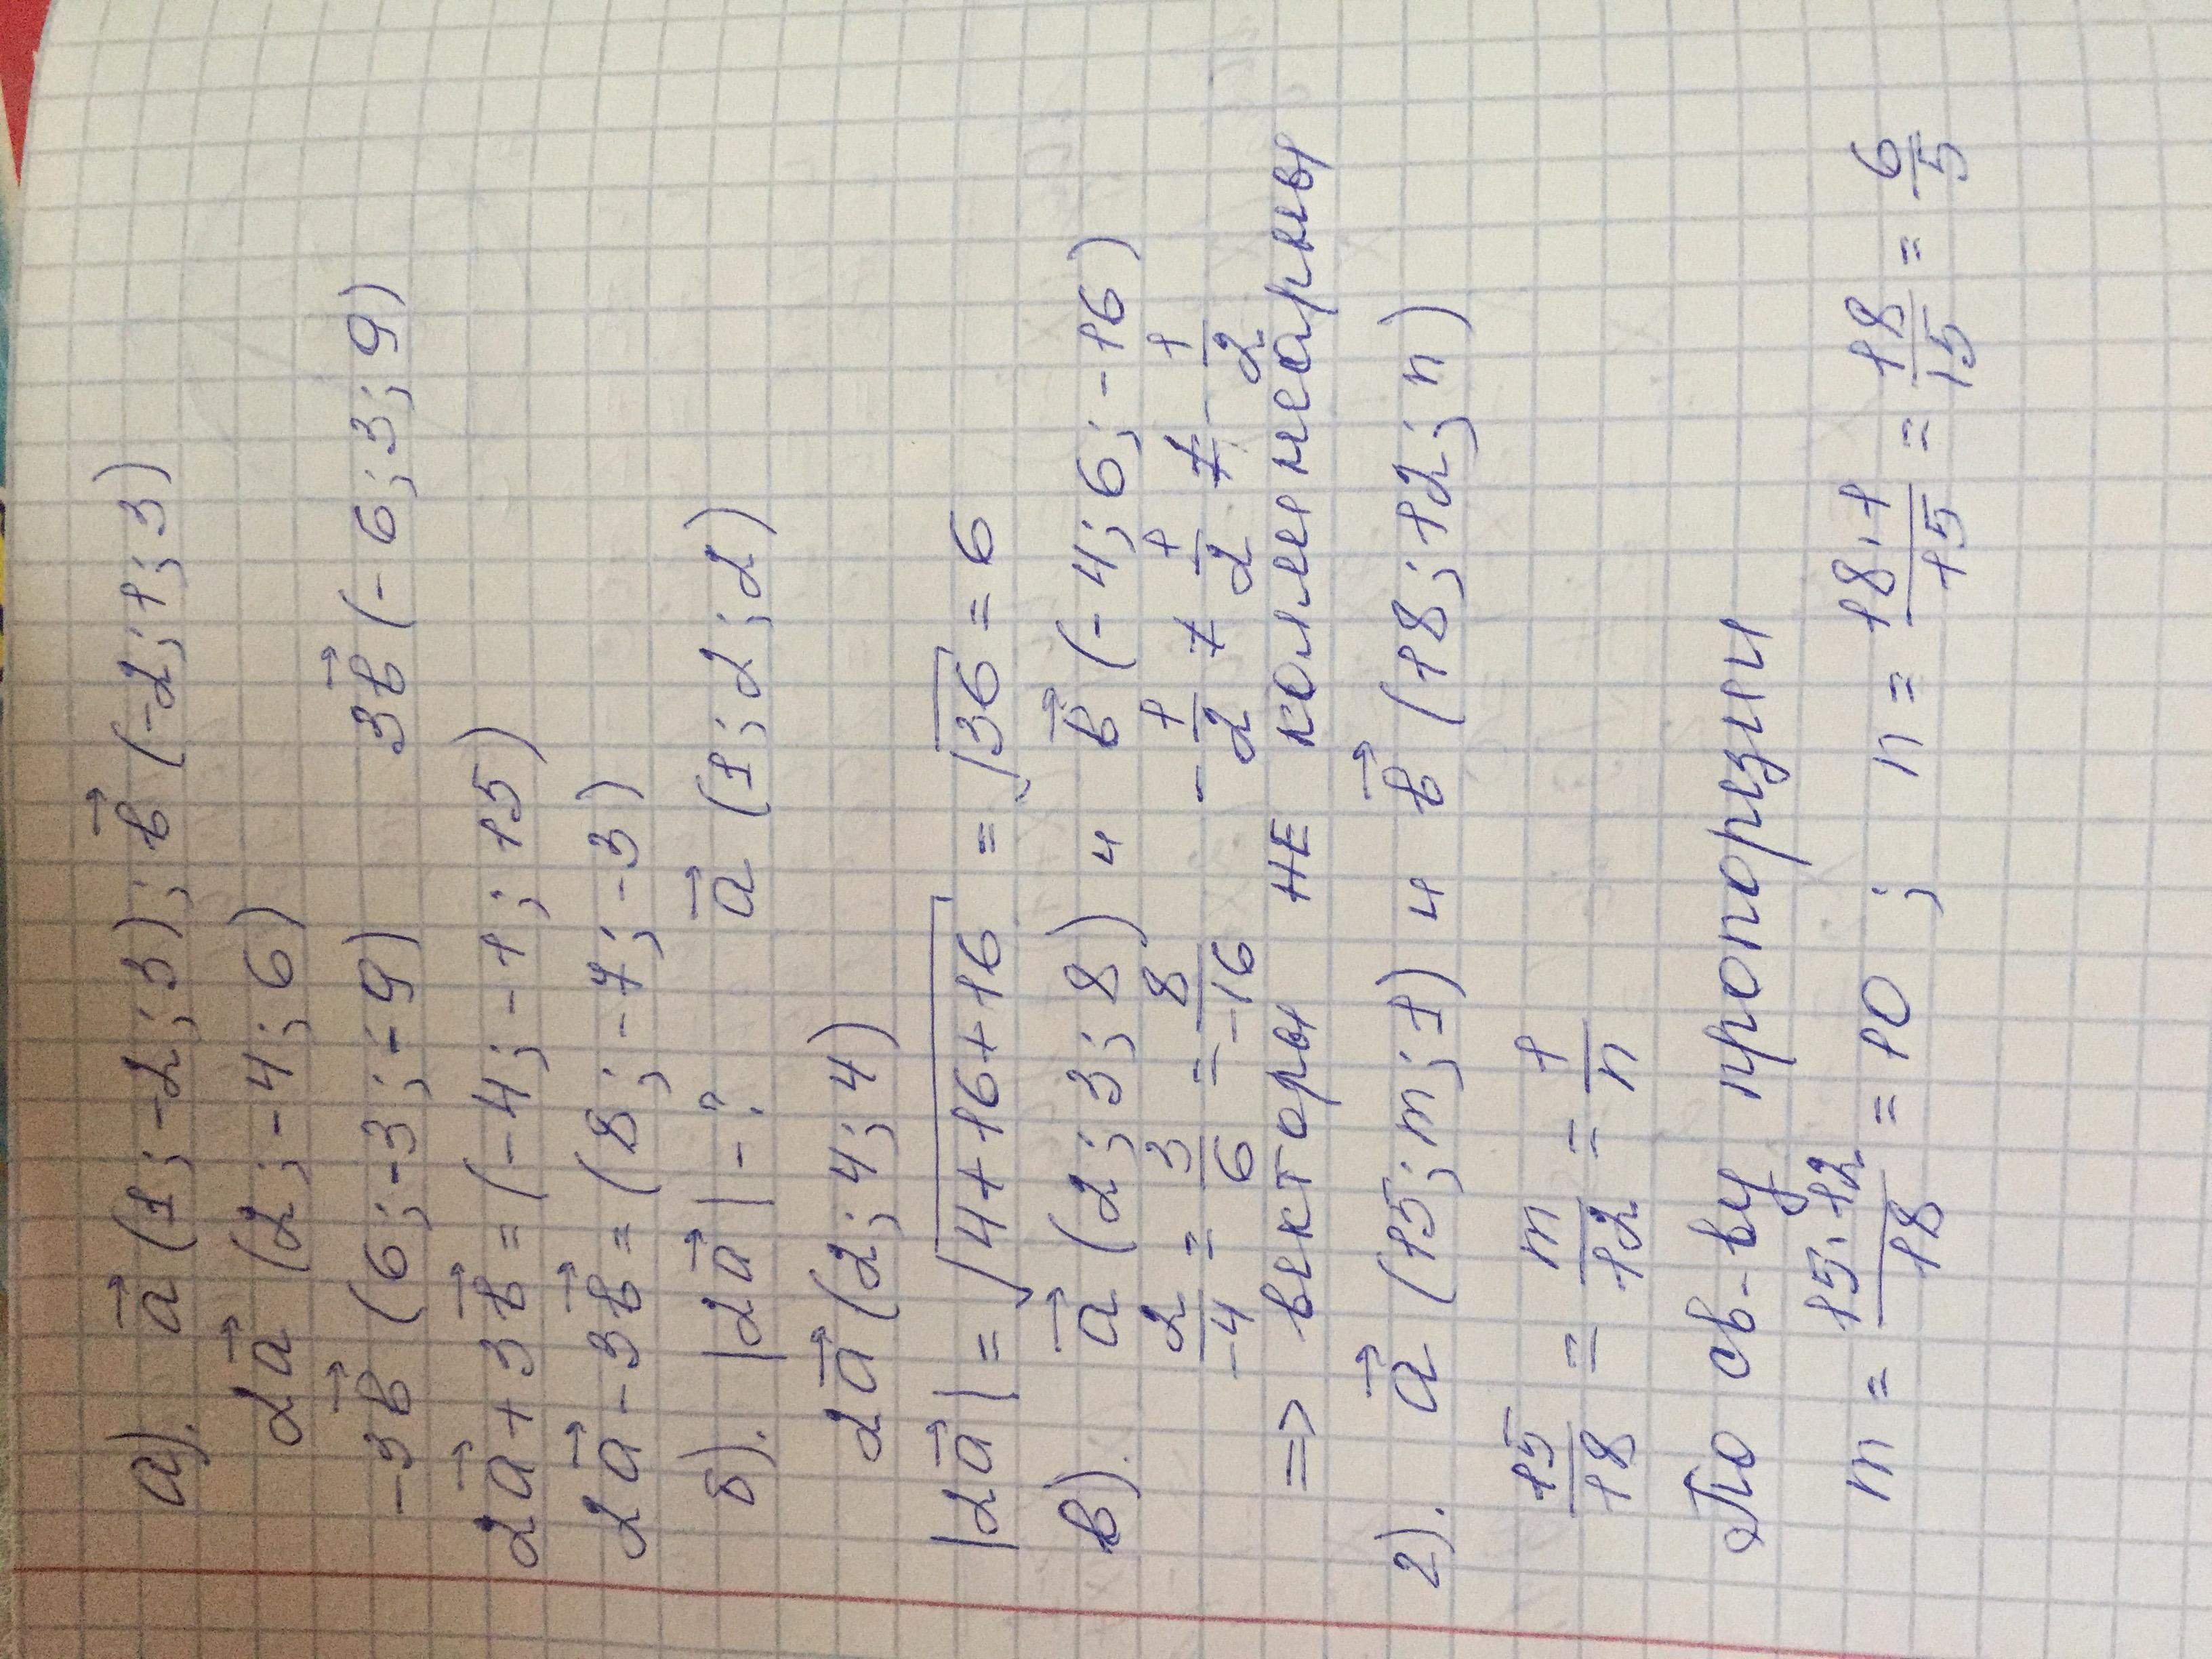 а). a⃗ (1; -2; 3); b⃗ (-2; 1; 3)
2a⃗ (2; -4; 6)
-3b⃗ (6; -3; -9) 3b⃗ (-6; 3; 9)
2a⃗ + 3b⃗ = (-4; -1; 15)
2a⃗ - 3b⃗ = (8; -7; -3)
б). |2a⃗| - ? a⃗ (1; 2; 2)
2a⃗ (2; 4; 4)
|2a⃗| = √(4+16+16) = √36 = 6
в). a⃗ (2; 3; 8) и b⃗ (-4; 6; -16)
2/-4 = 3/6 = 8/-16 - 1/2 ≠ 1/2 ≠ - 1/2
=> векторы НЕ коллинеарны
г). a⃗ (15; m; 1) и b⃗ (18; 12; n)
15/18 = m/12 = 1/n
По св-ву пропорции
m = 15·12/18 = 10; n = 18·1/15 = 18/15 = 6/5